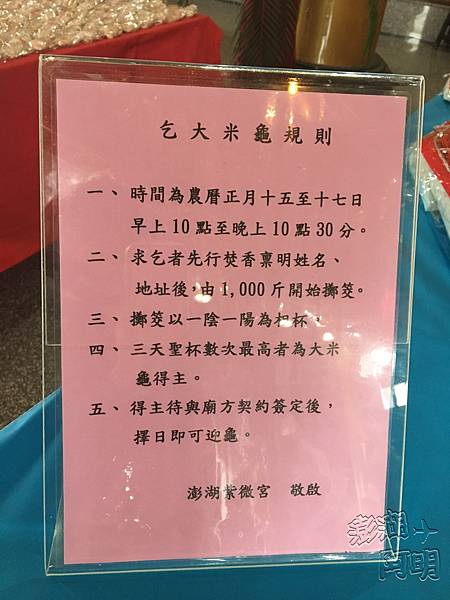 乞大米龜規則
一、時間為農曆正月十五至十七日
早上10點至晚上10點30分。
二、求乞者先行焚香稟明姓名、
地址後，由1,000斤開始擲筊。
三、擲筊以一陰一陽為相杯，
四、三天聖杯數次最高者為大米
龜得主。
五、得主待與廟方契約簽定後，
擇日即可迎龜。
澎湖紫微宮 敬啟
澎湖
阿明